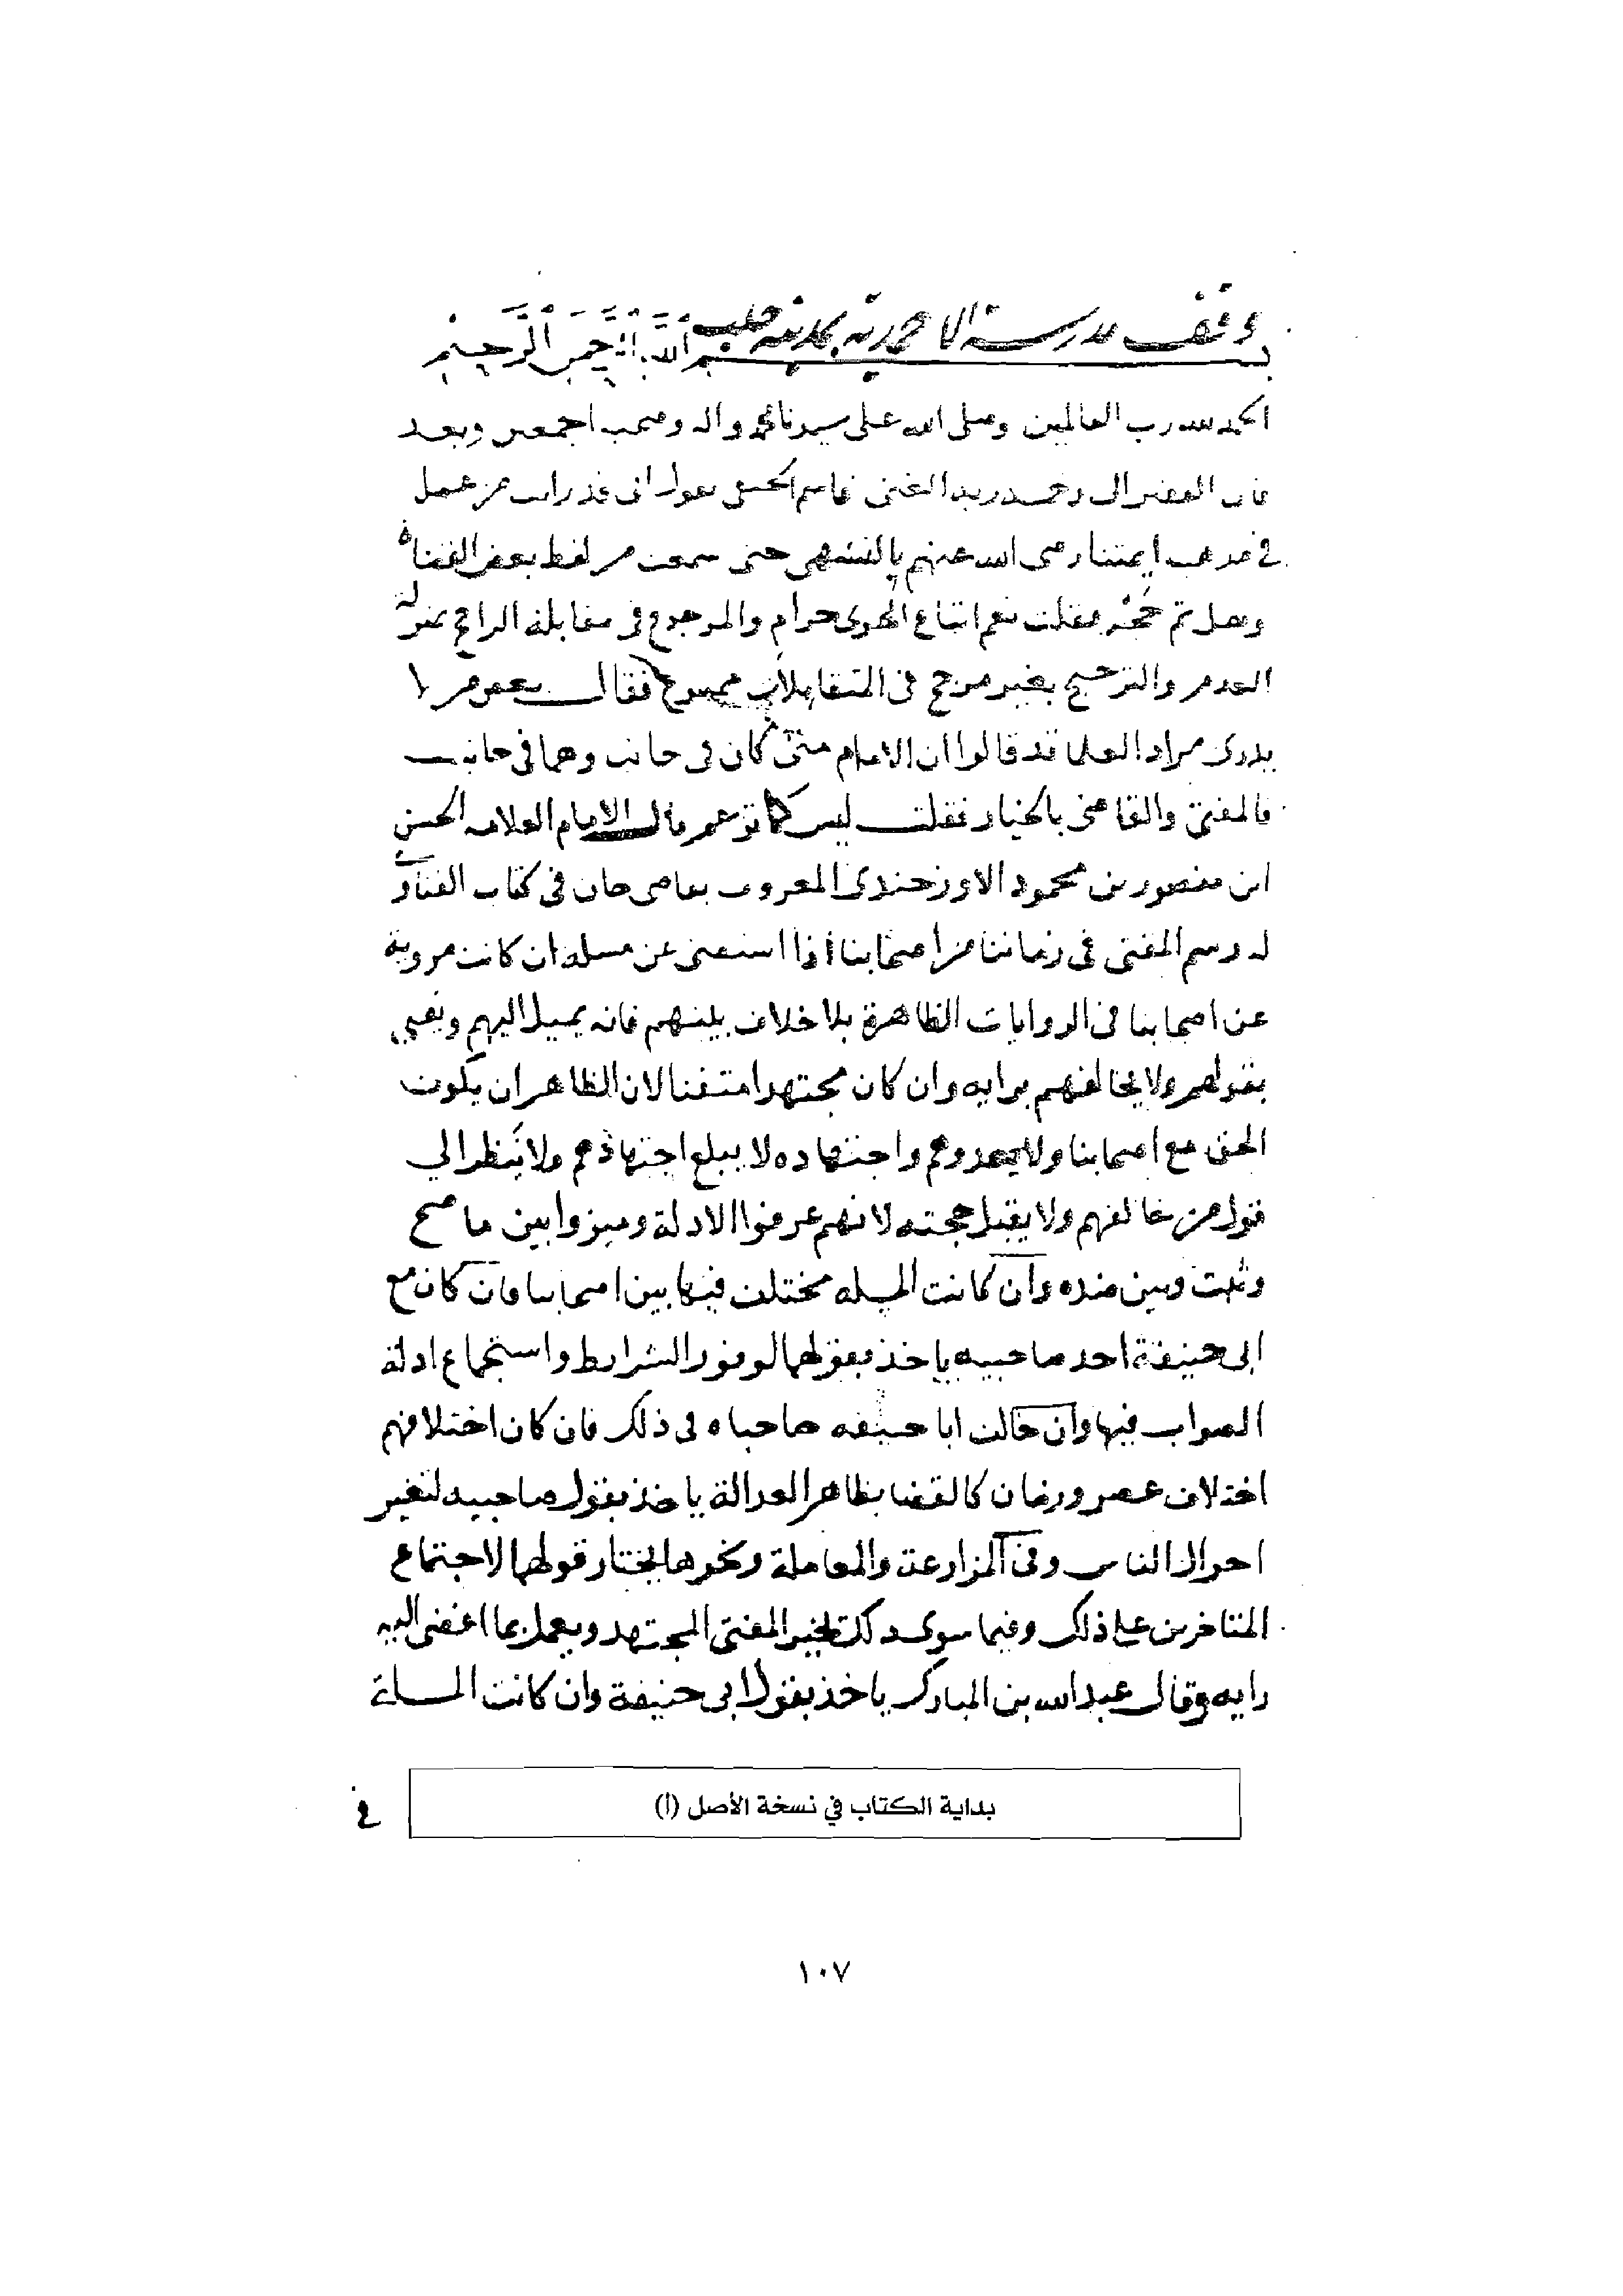 وقف مدرسة الاحمدية بمدينة حلب
بسم الله الرحمن الرحيم
الحمد لله رب العالمين وصلى الله على سيدنا محمد واله وصحبه اجمعين وبعد
فان الفقير الى رحمة ربه الغنى قاسم الحنفى يقول انى قد رايت من عمل
فى مذهب ايمتنا رضى الله عنهم بالتشهى حتى سمعت من لفظ بعض القضاة
وهل ثم حجر فقلت نعم اتباع الهوى حرام والمرجوح فى مقابلة الراجح بمنزلة
العدم والترجيح بغير مرجح فى المتقابلات ممنوع فقال بعض من لا
يدرى مراد العلما قد قالوا ان الامام متى كان فى جانب وهما فى جانب
فالمفتى والقاضى بالخيار فقلت ليس كما تزعم قال الامام العلامه الحسن
ابن منصور بن محمود الاوزجندى المعروف بقاضى خان فى كتاب الفتاوى
له رسم المفتى فى زماننا من اصحابنا اذا استفتى عن مسله ان كانت مروية
عن اصحابنا فى الروايات الظاهرة بلا خلاف بينهم فانه يميل اليهم ويفتى
بقولهم ولا يخالفهم برايه وان كان مجتهدا متقنا لان الظاهر ان يكون
الحق مع اصحابنا ولا يعدوهم واجتهاده لا يبلغ اجتهادهم ولا ينظر الي
قول من خالفهم ولا يقبل حجته لانهم عرفوا الادلة وميزوا بين ما صح
وثبت وبين ضده وان كانت المسله مختلف فيها بين اصحابنا فان كان مع
ابى حنيفة احد صاحبيه ياخذ بقولهما لوفور الشرايط واستجماع ادلة
الصواب فيها وان خالف ابا حنيفه صاحباه فى ذلك فان كان اختلافهم
اختلاف عصر وزمان كالقضا بظاهر العدالة ياخذ بقول صاحبيه لتغير
احوال الناس وفى المزارعة والمعاملة ونحوها يختار قولهما لاجتماع
المتاخرين على ذلك وفيما سوى ذلك يخير المفتى المجتهد ويعمل بما افضى اليه
رايه وقال عبدالله بن المبارك ياخذ بقول ابى حنيفة وان كانت المسلة
بداية الكتاب في نسخة الأصل (أ)
١٠٧